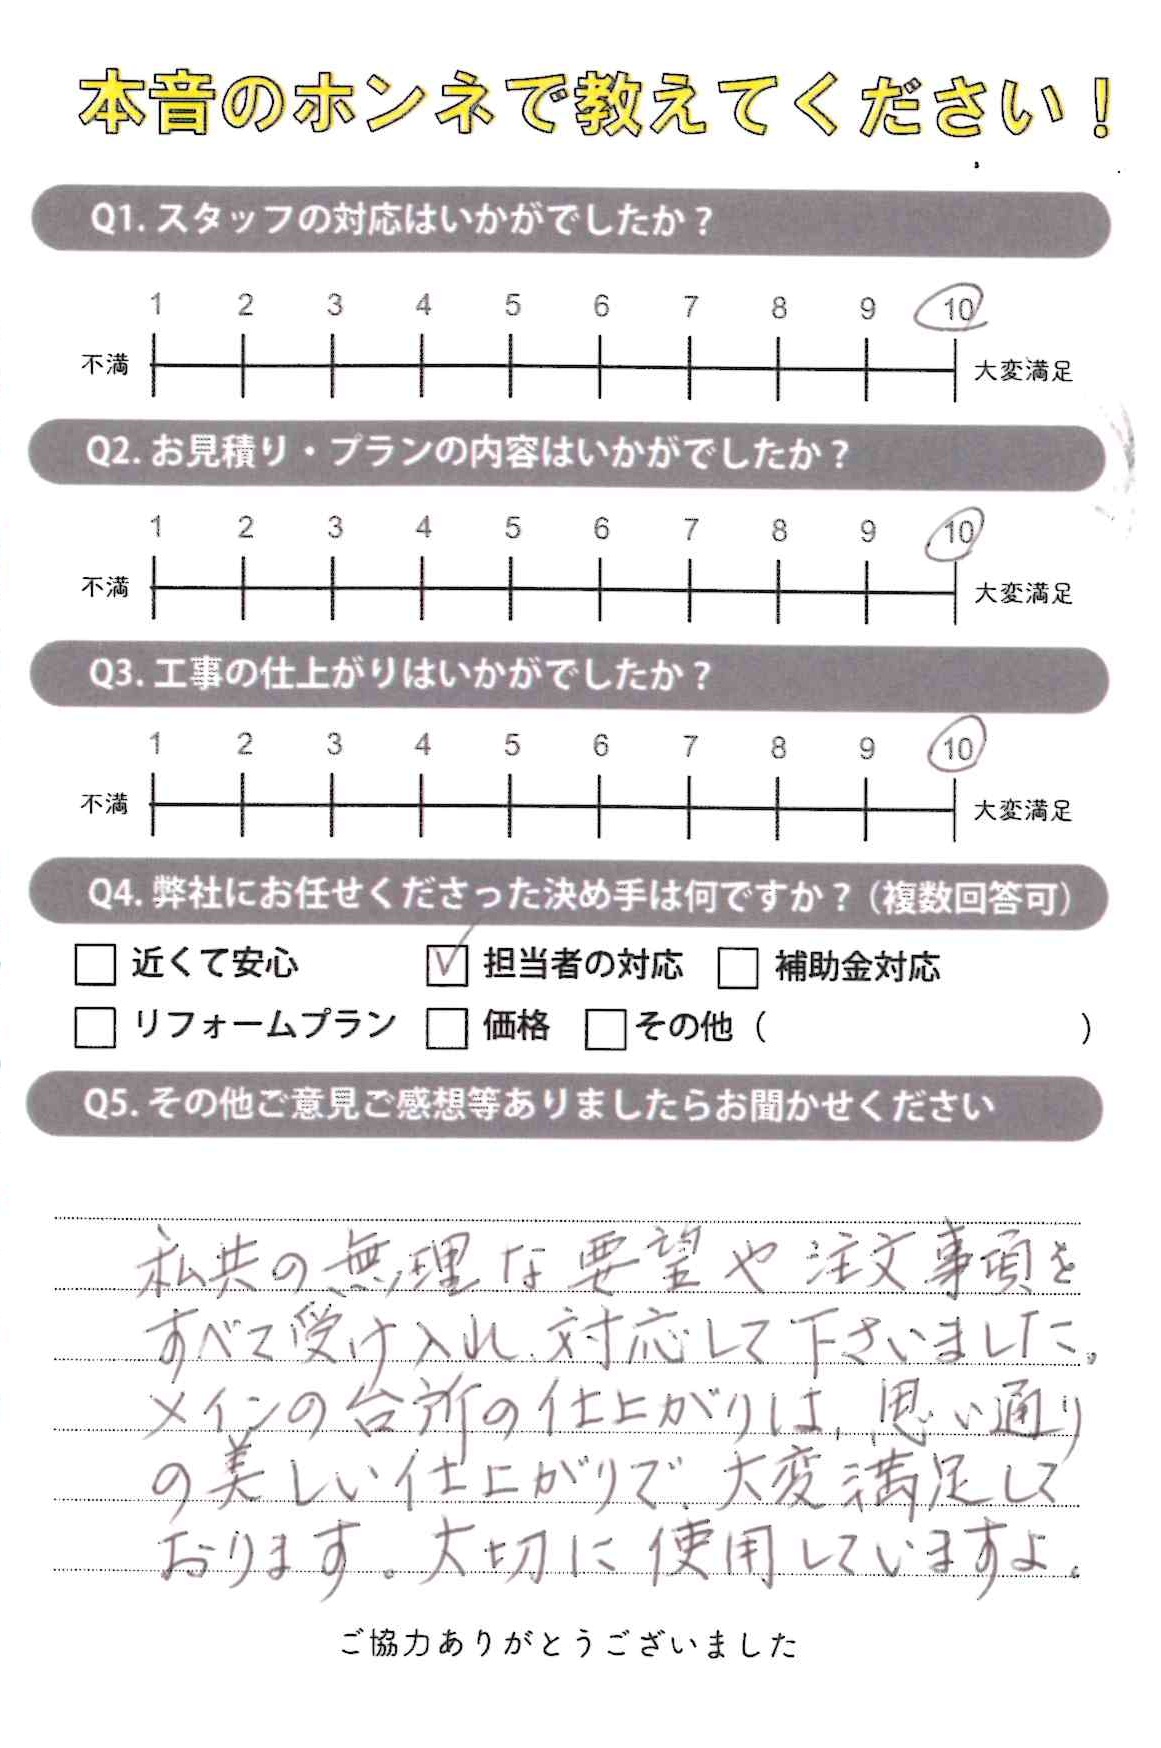 本音のホンネで教えてください！
Q1. スタッフの対応はいかがでしたか？
1 2 3 4 5 6 7 8 9 10
不満 大変満足
Q2. お見積り・プランの内容はいかがでしたか？
1 2 3 4 5 6 7 8 9 10
不満 大変満足
Q3. 工事の仕上がりはいかがでしたか？
1 2 3 4 5 6 7 8 9 10
不満 大変満足
Q4. 弊社にお任せくださった決め手は何ですか？（複数回答可）
近くて安心 担当者の対応 補助金対応
リフォームプラン 価格 その他（ ）
Q5. その他ご意見ご感想等ありましたらお聞かせください
私共の無理な要望や注文事項を
すべて受け入れ、対応して下さいました。
メインの台所の仕上がりは、思い通り
の美しい仕上がりで、大変満足して
おります。大切に使用していますよ。
ご協力ありがとうございました